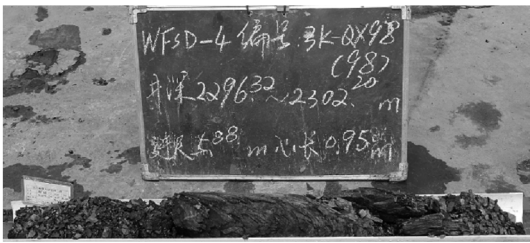 WFSD-4 编号 3K-QX98
(98)
井深2296.32~2302.20 m
尺5.88 m 心长0.95 m